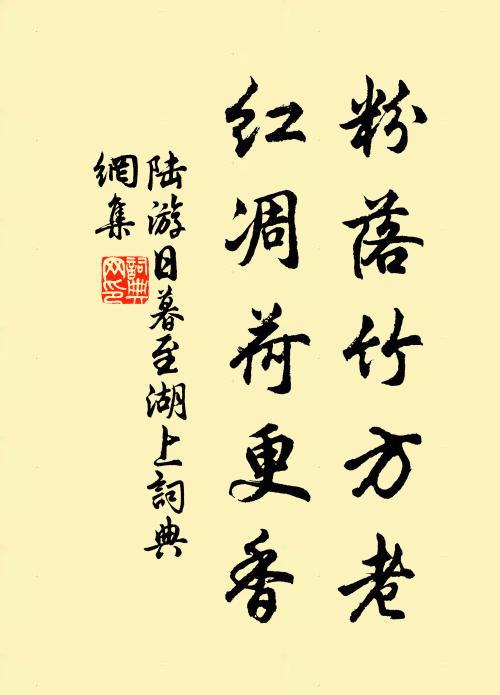 粉落竹方老
红凋荷更香
陆游日暮至湖上詞典
網集
詞典网印